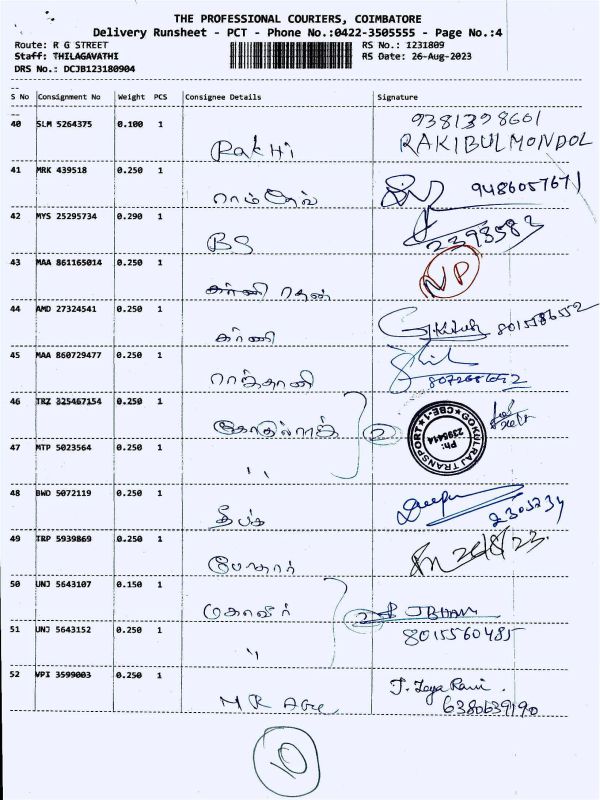 THE PROFESSIONAL COURIERS, COIMBATORE
Delivery Runsheet - PCT - Phone No.:0422-3505555 - Page No.:4
Route: R G STREET RS No.: 1231809
Staff: THILAGAVATHI RS Date: 26-Aug-2023
DRS No.: DCJB123180904
S No Consignment No Weight PCS Consignee Details Signature
40 SLM 5264375 0.100 1 9381398601
RakHi RAKIBULMONDOL
41 MRK 439518 0.250 1
ராம்தேவ்
42 MYS 25295734 0.290 1
BS 2398583
43 MAA 861165014 0.250 1 NP
44 AMD 27324541 0.250 1
கர்ணி 8015586552
45 MAA 860729477 0.250 1
46 TRZ 325467154 0.250 1
2 GOKULRAJ TRANSPORT CBE-1 Ph: 2395414
47 MTP 5023564 0.250 1
"
48 BWD 5072119 0.250 1
தீபக் 2305234
49 TRP 5939869 0.250 1
26/8/23
50 UNJ 5643107 0.150 1
மகாவீர் 2
51 UNJ 5643152 0.250 1 8015560485
"
52 VPI 3599003 0.250 1 J. Jeya Rani.
6380639190
10